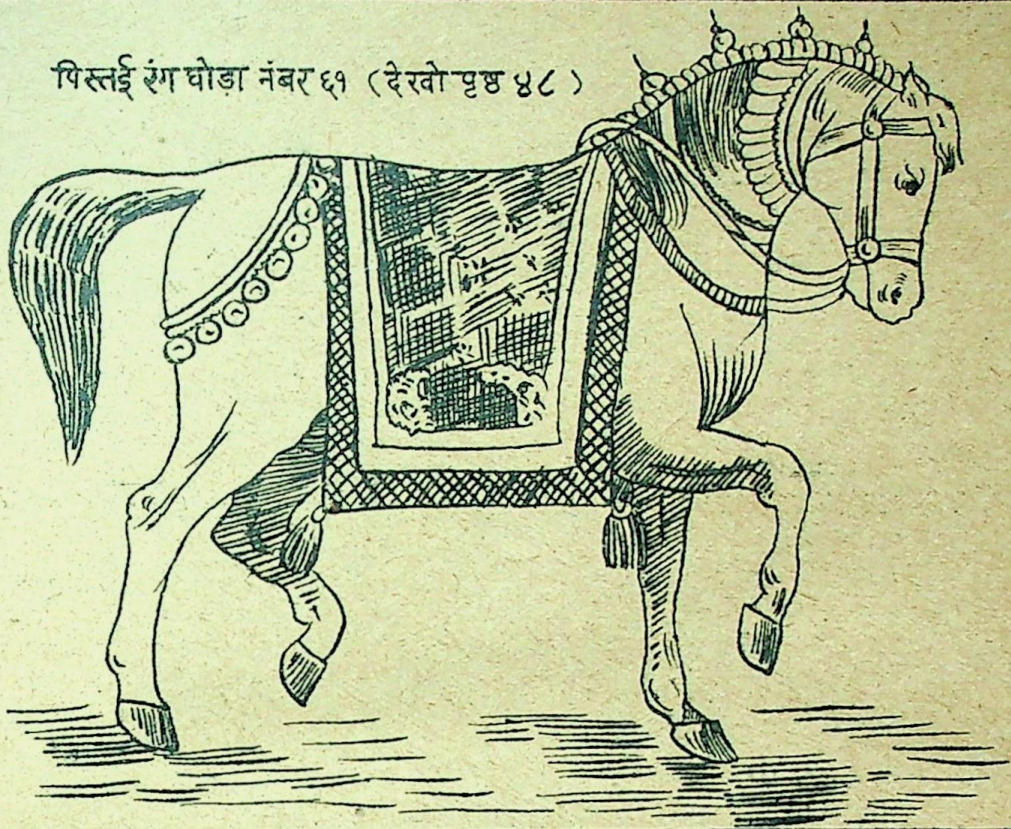 पिस्तई रंग घोड़ा नंबर ६१ (देखो पृष्ठ ४८)